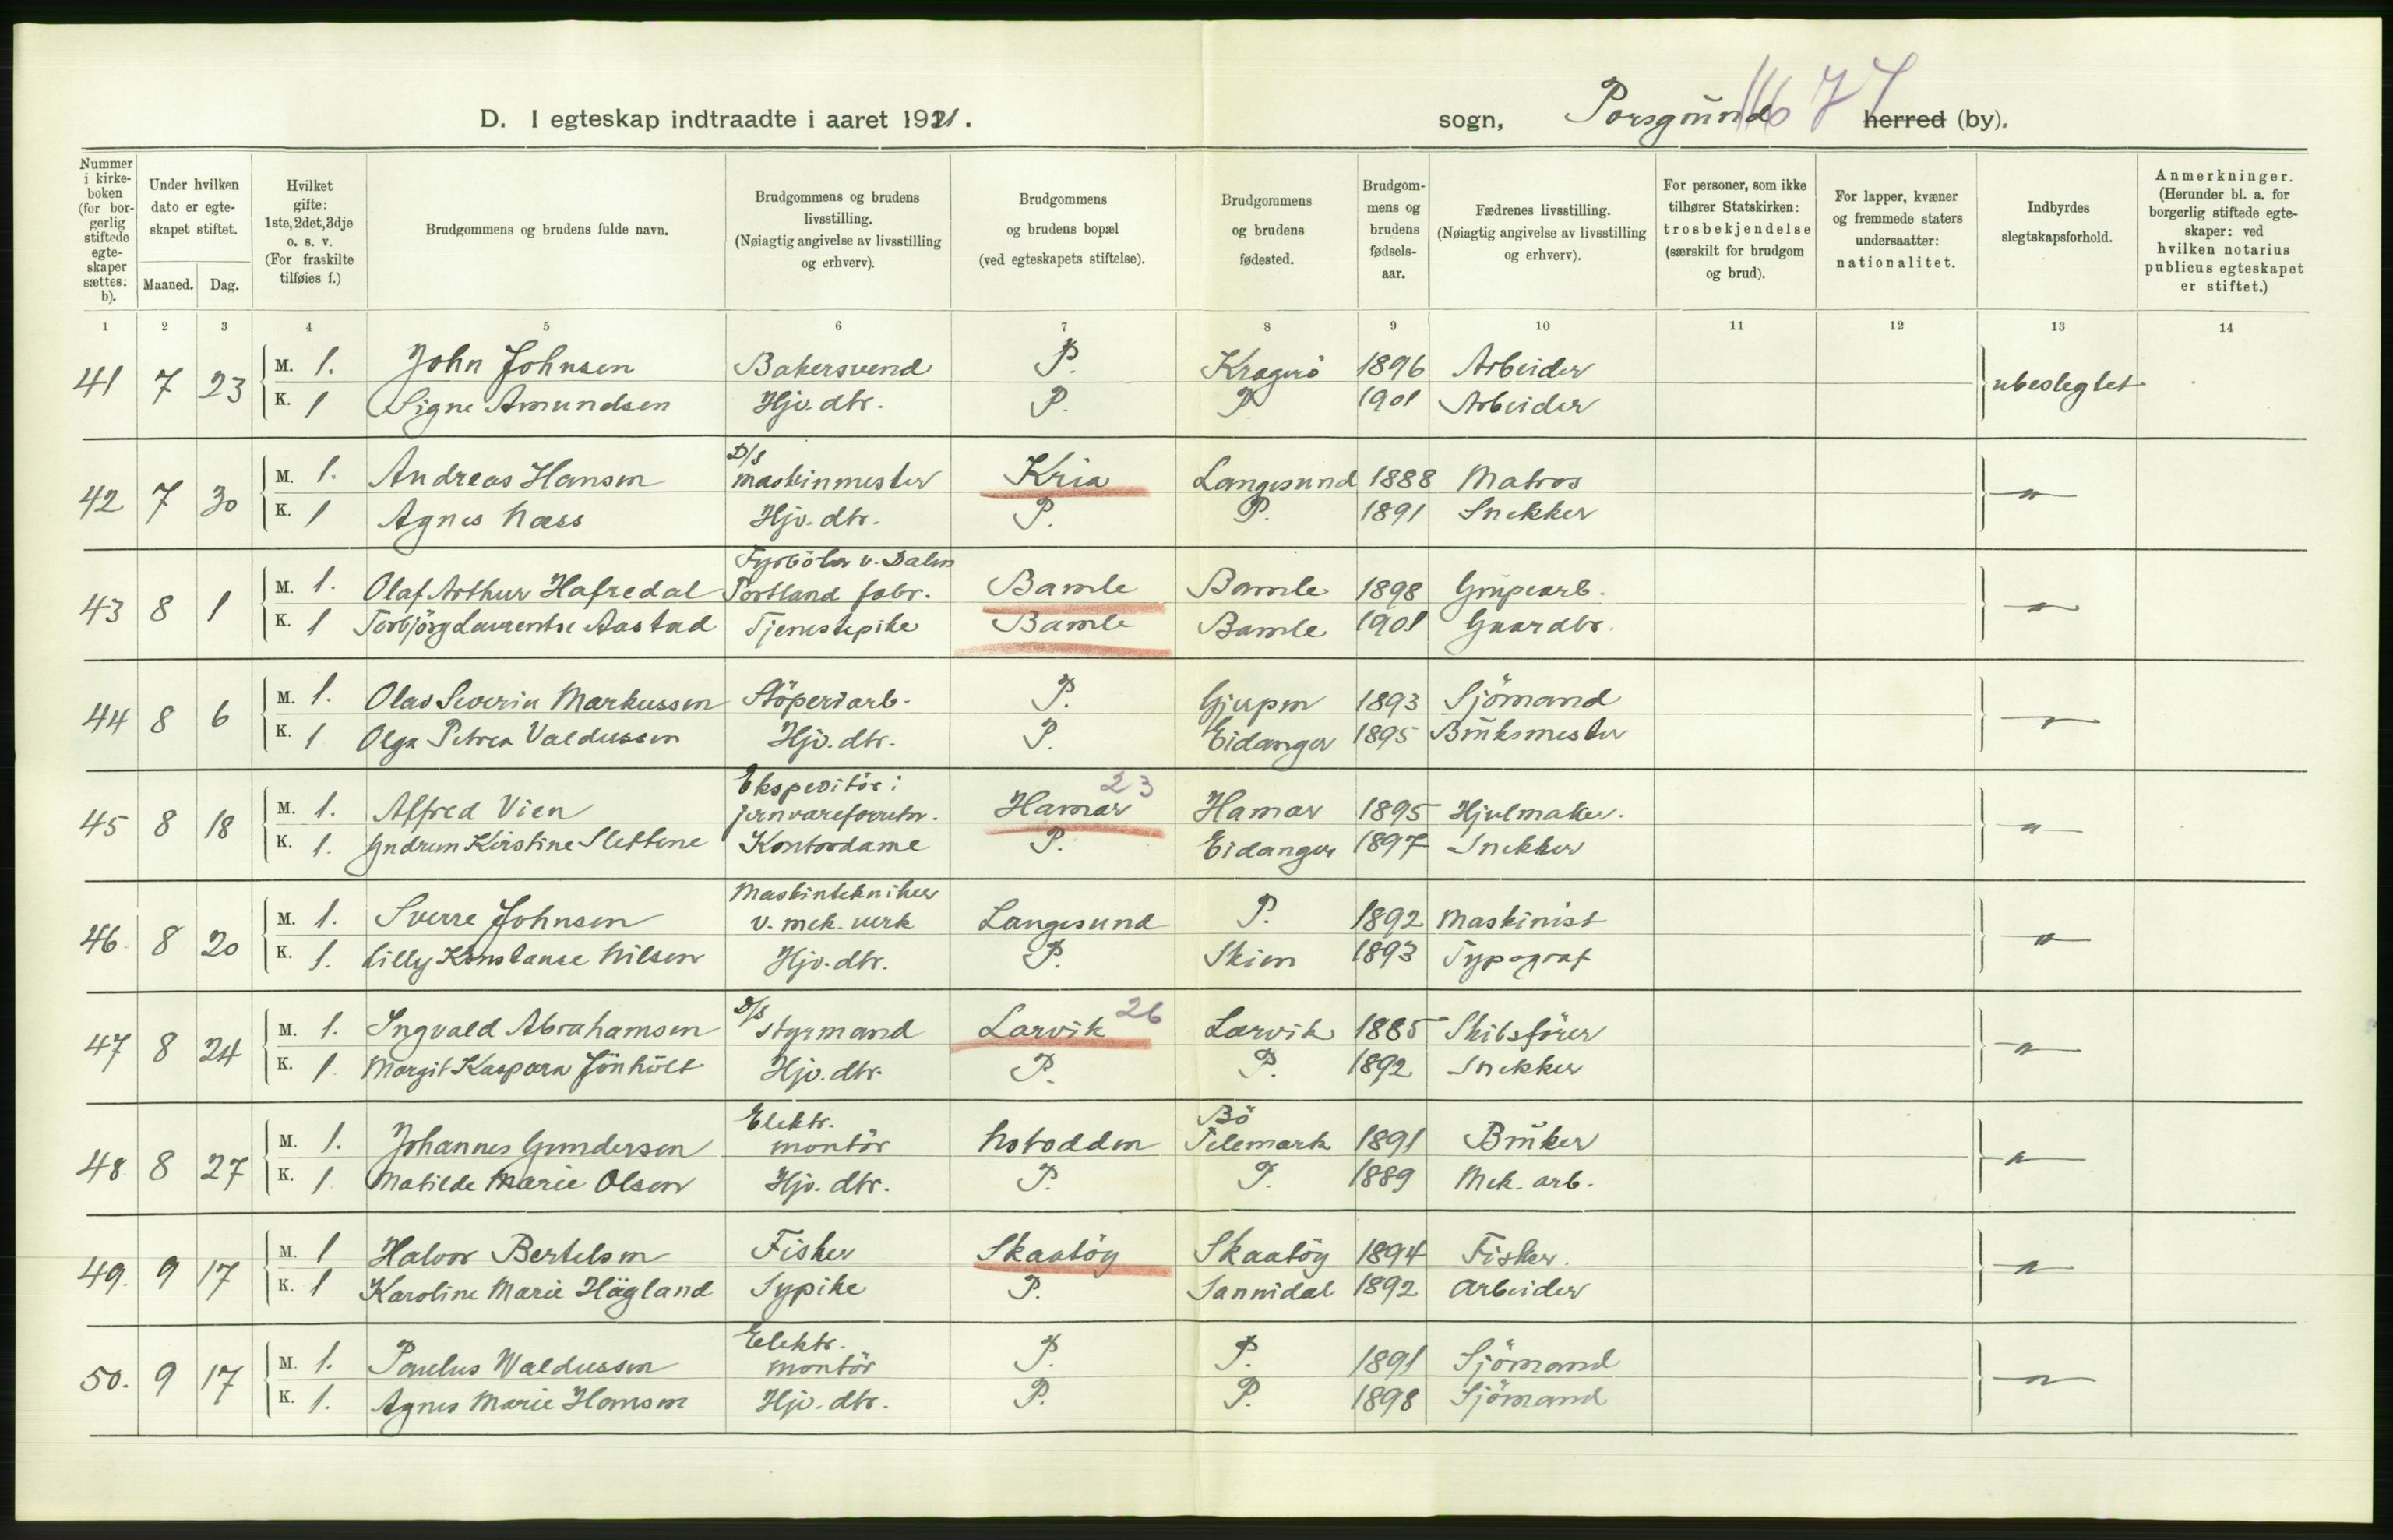 D. I egteskap indtraadte i aaret 1921.
sogn, Porsgrund herred (by).
Nummer i kirke-boken (for bor-gerlig stiftede egte-skaper sættes: b).
Under hvilken dato er egte-skapet stiftet.
Maaned. Dag.
Hvilket gifte: 1ste, 2det, 3dje o. s. v. (For fraskilte tilføies f.)
Brudgommens og brudens fulde navn.
Brudgommens og brudens livsstilling. (Nøiagtig angivelse av livsstilling og erhverv).
Brudgommens og brudens bopæl (ved egteskapets stiftelse).
Brudgommens og brudens fødested.
Brudgom-mens og brudens fødsels-aar.
Fædrenes livsstilling. (Nøiagtig angivelse av livsstilling og erhverv).
For personer, som ikke tilhører Statskirken: trosbekjendelse (særskilt for brudgom og brud).
For lapper, kvæner og fremmede staters undersaatter: nationalitet.
Indbyrdes slegtskapsforhold.
Anmerkninger. (Herunder bl. a. for borgerlig stiftede egte-skaper: ved hvilken notarius publicus egteskapet er stiftet.)
1 2 3 4 5 6 7 8 9 10 11 12 13 14
41 7 23 M. 1. John Johnsen Bakersvend P. Kragerö 1896 Arbeider ubeslegtet
K. 1 Signe Amundsen Hjv. dtr. P. P. 1901 Arbeider
42 7 30 M. 1. Andreas Hansen D/S maskinmester Kria Langesund 1888 Matros "
K. 1 Agnes Næss Hjv. dtr. P. P. 1891 Snekker
43 8 1 M. 1. Olaf Arthur Hafredal Fyrböter v. Dalen Portland fabr. Bamle Bamle 1898 Grupearb. "
K. 1 Torbjörg Laurentse Aastad Tjenestepike Bamle Bamle 1901 Gaardbr.
44 8 6 M. 1. Olav Severin Markussen Stöperiarb. P. Gjerpen 1893 Sjömand "
K. 1 Olga Petrea Valdussen Hjv. dtr. P. Eidanger 1895 Bruksmester
45 8 18 M. 1. Alfred Vien Ekspeditör i jernvareforretn. Hamar 23 Hamar 1895 Hjulmaker. "
K. 1. Gudrun Kirstine Slettene Kontordame P. Eidanger 1897 Snekker
46. 8 20 M. 1. Sverre Johnsen Maskintekniker v. mek. verk Langesund P. 1892 Maskinist "
K. 1. Lilly Konstanse Nilsen Hjv. dtr. P. Skien 1893 Typograf
47 8 24 M. 1. Ingvald Abrahamsen D/S styrmand Larvik 26 Larvik 1885 Skibsförer "
K. 1 Margit Kaspara Jönholt Hjv. dtr. P. P. 1892 Snekker
48. 8 27 M. 1. Johannes Gundersen Elektr. montör Notodden Bö Telemark 1891 Bruker "
K. 1 Matilde Marie Olsen Hjv. dtr. P. P. 1889 Mek. arb.
49. 9 17 M. 1 Halvor Bertelsen Fisker Skaatöy Skaatöy 1894 Fisker. "
K. 1 Karoline Marie Hägland Sypike P. Sannidal 1892 Arbeider
50. 9 17 M. 1. Paulus Waldussen Elektr. montör P. P. 1891 Sjömand "
K. 1. Agnes Marie Hansen Hjv. dtr. P. P. 1898 Sjömand